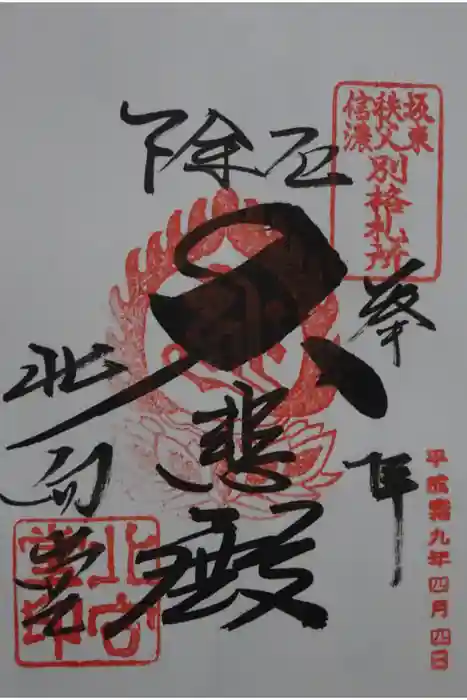 坂東
秩父
信濃
別格札所
奉拝
平成
九年四月四日
厄除
悲殿
北向堂
北向
堂印